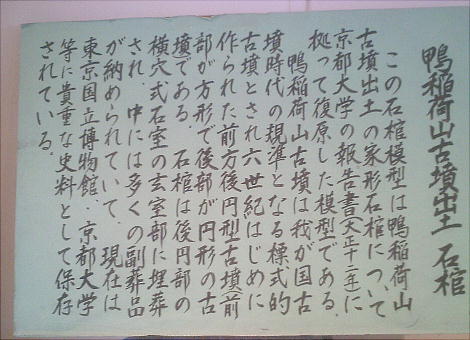 鴨稲荷山古墳出土 石棺
この石棺模型は鴨稲荷山
古墳出土の家形石棺について
京都大学の報告書(大正十二年)に
拠って復原した模型である。
鴨稲荷山古墳は我が国古
墳時代の規準となる標式的
古墳とされ六世紀はじめに
作られた前方後円型古墳前
部が方形で後部が円形の古
墳である。石棺は後円部の
横穴式石室の玄室部に埋葬
され、中には多くの副葬品
が納められていて、現在は
東京国立博物館、京都大学
等に貴重な史料として保存
されている。